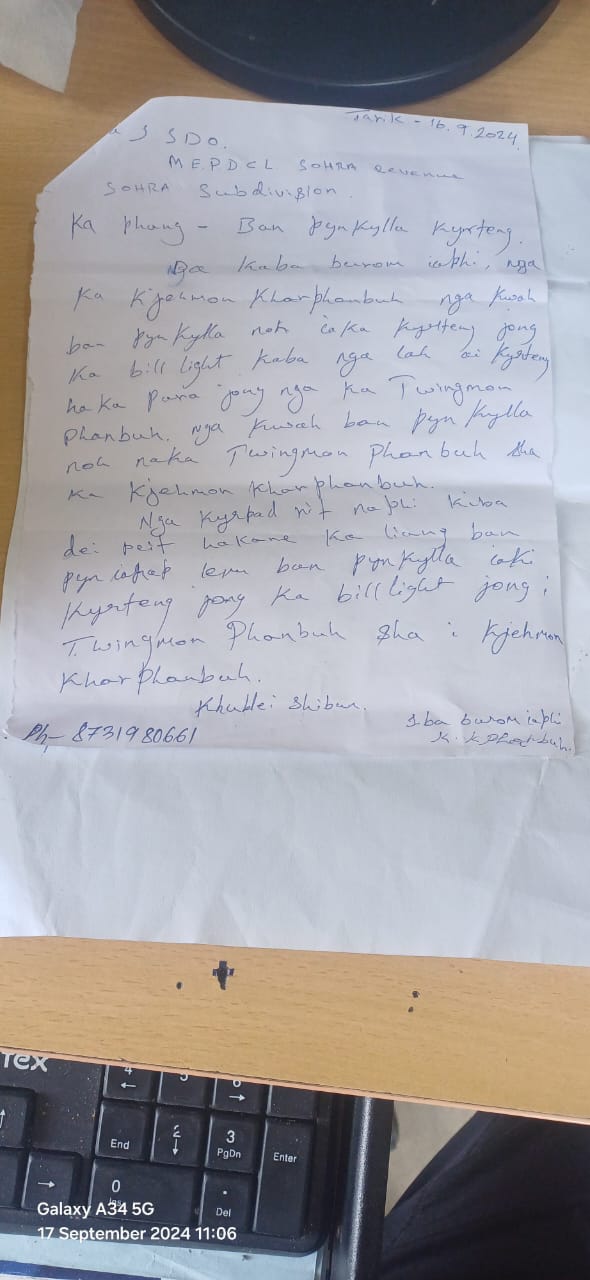 Tarik - 16.9.2024
SDO.
MEPDCL SOHRA Revenue
SOHRA Subdivision.
Ka phang - Ban pynkylla kyrteng.
Nga kaba burom iaphi, nga
ka Kjehmon Kharphanbuh nga kwah
ban pynkylla noh iaka kyrteng jong
Ka bill light kaba nga lah ai kyrteng
ha ka para jong nga ka Twingmon
Phanbuh. nga kwah ban pyn kylla
noh naka Twingmon Phanbuh sha
ka Kjehmon Kharphanbuh.
Nga kyrpad nit naphi kiba
dei peit hakane ka liang ban
pyn iohap lem ban pynkylla iaki
Kyrteng jong ka bill light jong i
Twingmon Phanbuh sha i Kjehmon
Kharphanbuh.
Khublei Shibun.
I ba burom iaphi
Ph - 8731980661
K. K
TEX
4
6
End
2
3
PgDn
Enter
0
Ins
.
Del
Galaxy A34 5G
17 September 2024 11:06